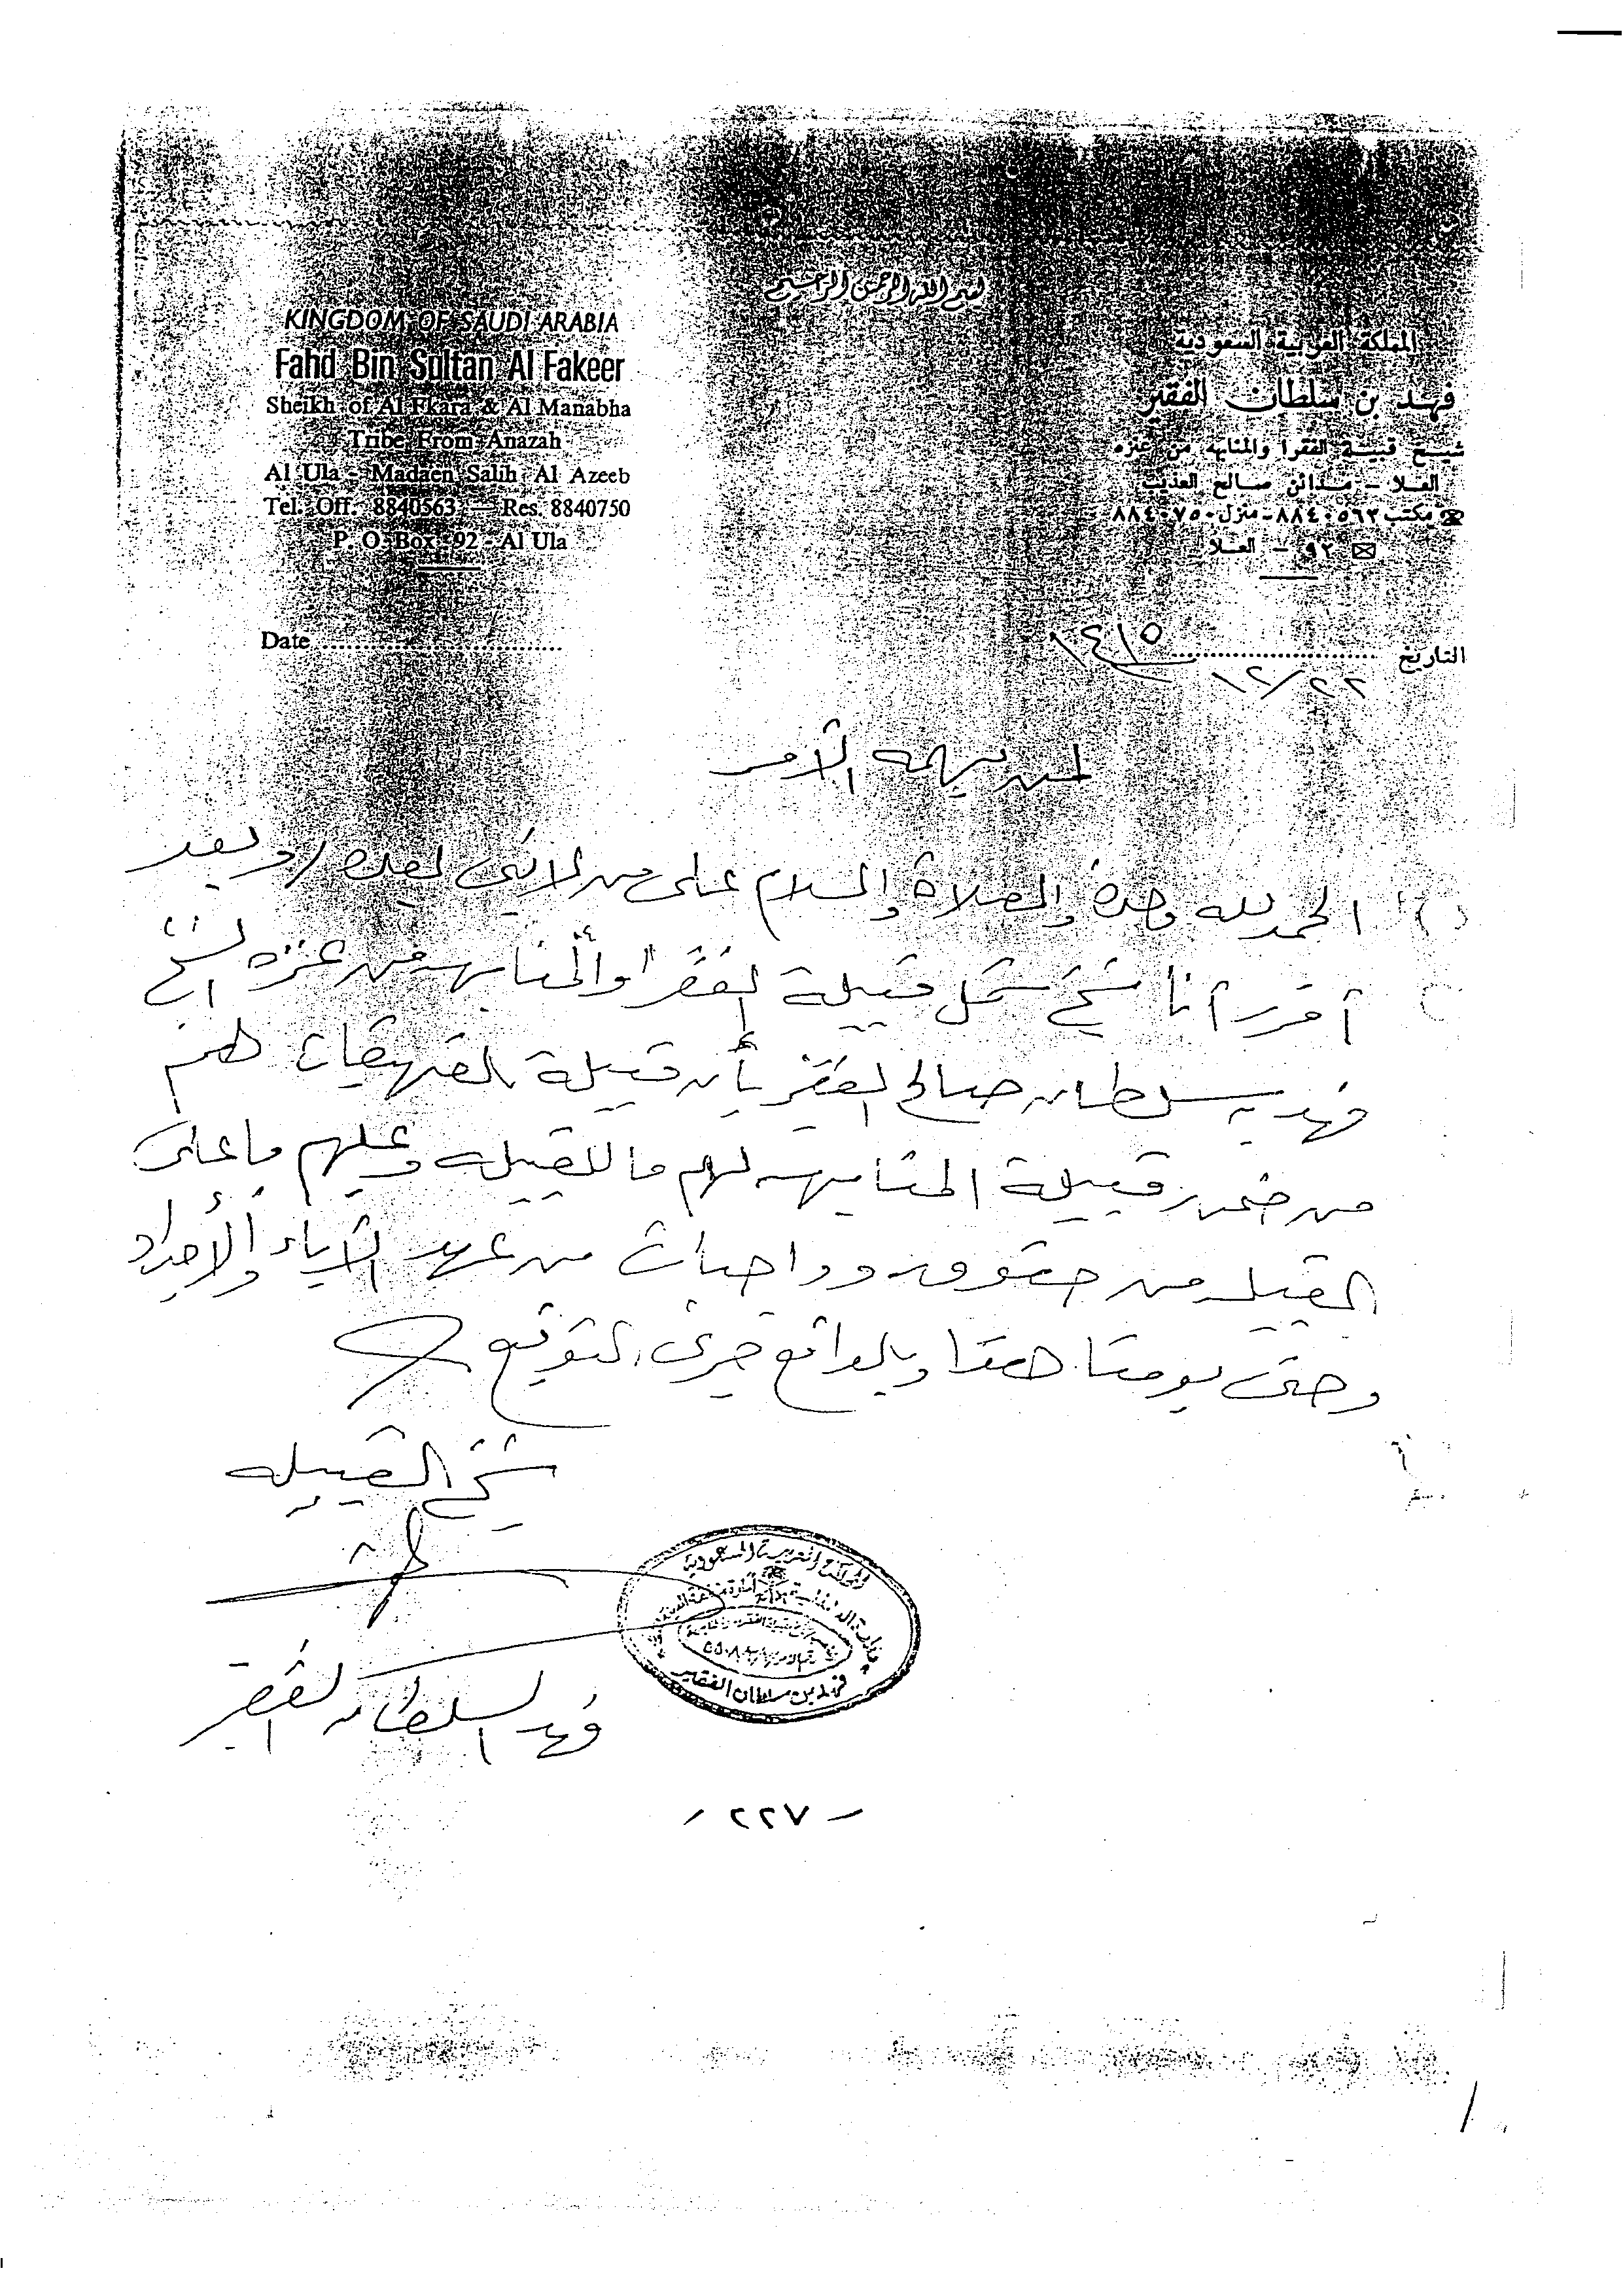 بسم الله الرحمن الرحيم
KINGDOM OF SAUDI ARABIA
Fahd Bin Sultan Al Fakeer
Sheikh of Al Fkara & Al Manabha
Tribe From Anazah
Al Ula - Madaen Salih Al Azeeb
Tel. Off. 8840563 — Res. 8840750
P. O. Box 92 - Al Ula
Date
المملكة العربية السعودية
فهد بن سلطان الفقير
شيخ قبيلة الفقرا والمنابهه من عنزه
العلا - مدائن صالح العذيب
مكتب ٨٨٤٠٥٦٣ - منزل ٨٨٤٠٧٥٠
٩٢ - العلا
التاريخ ٢٢/١٢/١٤١٥
لمن يهمه الأمر
الحمد لله وحده والصلاة والسلام على من لا نبي بعده / وبعد
أقرر أنا شيخ شمل قبيلة الفقرا والمنابهه من عنزه الشيخ
فهد بن سلطان صالح الفقير بأن قبيلة الفهيقات هم
من ضمن قبيلة المنابهه لهم ما للقبيله وعليهم ما على
القبيله من حقوق وواجبات من عهد الآباء والأجداد
وحتى يومنا هذا وبالواقع جرى التوقيع
شيخ القبيله
المملكة العربية السعودية
فهد بن سلطان الفقير
فهد السلطان الفقير
- ٢٢٧ -